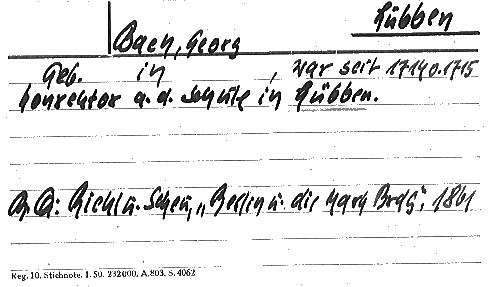 Lübben
Bach, Georg
Geb. in , war seit 1714 o. 1715
Konrektor a. d. Schule in Lübben.
Riehl u. Scheu, „Berlin u. die Mark Brdg", 1861
Reg. 10. Stichnote. 1. 50. 232000. A. 803. S. 4062